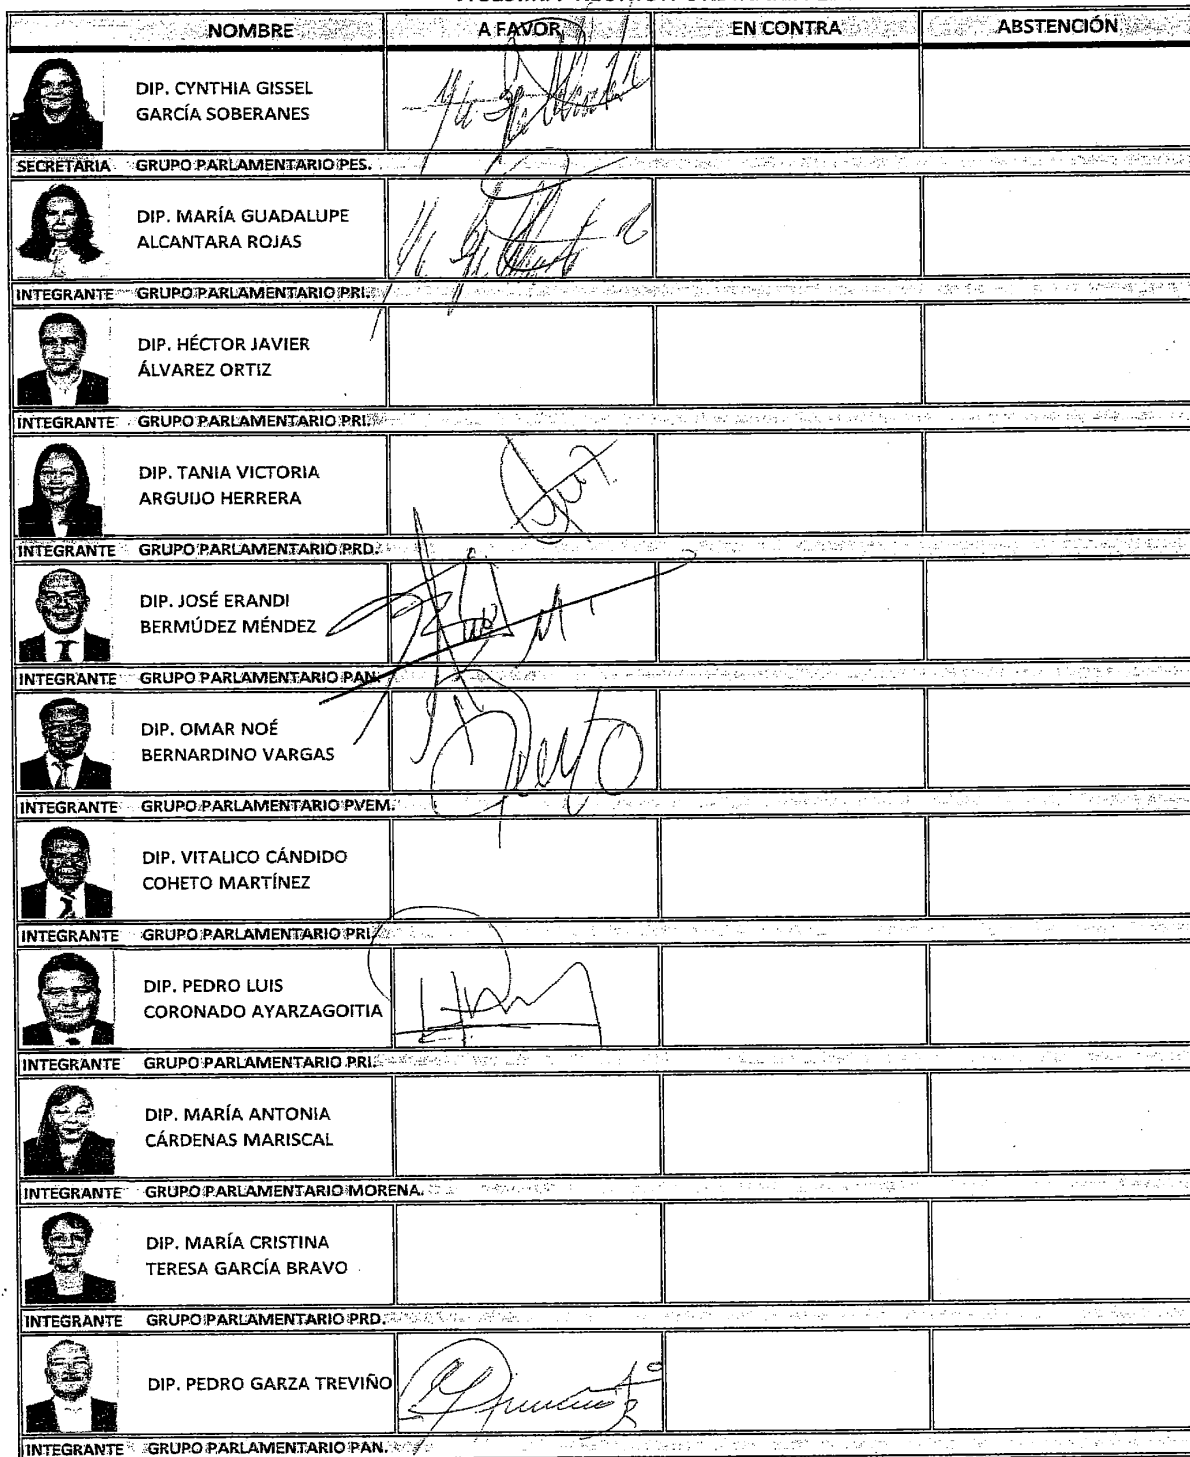 NOMBRE A FAVOR EN CONTRA ABSTENCIÓN
DIP. CYNTHIA GISSEL
GARCÍA SOBERANES
SECRETARIA GRUPO PARLAMENTARIO PES.
DIP. MARÍA GUADALUPE
ALCANTARA ROJAS
INTEGRANTE GRUPO PARLAMENTARIO PRI.
DIP. HÉCTOR JAVIER
ÁLVAREZ ORTIZ
INTEGRANTE GRUPO PARLAMENTARIO PRI.
DIP. TANIA VICTORIA
ARGUIJO HERRERA
INTEGRANTE GRUPO PARLAMENTARIO PRD.
DIP. JOSÉ ERANDI
BERMÚDEZ MÉNDEZ
INTEGRANTE GRUPO PARLAMENTARIO PAN.
DIP. OMAR NOÉ
BERNARDINO VARGAS
INTEGRANTE GRUPO PARLAMENTARIO PVEM.
DIP. VITALICO CÁNDIDO
COHETO MARTÍNEZ
INTEGRANTE GRUPO PARLAMENTARIO PRI.
DIP. PEDRO LUIS
CORONADO AYARZAGOITIA
INTEGRANTE GRUPO PARLAMENTARIO PRI.
DIP. MARÍA ANTONIA
CÁRDENAS MARISCAL
INTEGRANTE GRUPO PARLAMENTARIO MORENA.
DIP. MARÍA CRISTINA
TERESA GARCÍA BRAVO
INTEGRANTE GRUPO PARLAMENTARIO PRD.
DIP. PEDRO GARZA TREVIÑO
INTEGRANTE GRUPO PARLAMENTARIO PAN.